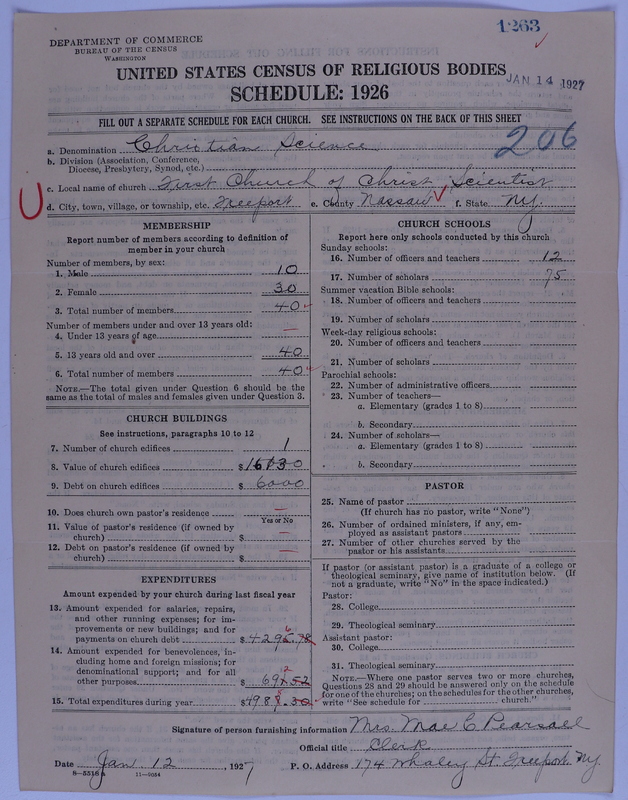 1263
DEPARTMENT OF COMMERCE
BUREAU OF THE CENSUS
WASHINGTON
UNITED STATES CENSUS OF RELIGIOUS BODIES
JAN 14 1927
SCHEDULE: 1926
FILL OUT A SEPARATE SCHEDULE FOR EACH CHURCH. SEE INSTRUCTIONS ON THE BACK OF THIS SHEET
206
a. Denomination Christian Science
b. Division (Association, Conference,
Diocese, Presbytery, Synod, etc.)
c. Local name of church First Church of Christ, Scientist
d. City, town, village, or township, etc. Freeport e. County Nassau f. State N.Y.
MEMBERSHIP
Report number of members according to definition of
member in your church
Number of members, by sex:
1. Male 10
2. Female 30
3. Total number of members 40
Number of members under and over 13 years old:
4. Under 13 years of age —
5. 13 years old and over 40
6. Total number of members 40
NOTE.—The total given under Question 6 should be the
same as the total of males and females given under Question 3.
CHURCH BUILDINGS
See instructions, paragraphs 10 to 12
7. Number of church edifices 1
8. Value of church edifices $16130
9. Debt on church edifices $6000
10. Does church own pastor's residence? —
Yes or No
11. Value of pastor's residence (if owned by
church) $ —
12. Debt on pastor's residence (if owned by
church) $ —
EXPENDITURES
Amount expended by your church during last fiscal year
13. Amount expended for salaries, repairs,
and other running expenses; for im-
provements or new buildings; and for
payments on church debt $4295.78
14. Amount expended for benevolences, in-
cluding home and foreign missions; for
denominational support; and for all
other purposes $
15. Total expenditures during year $
CHURCH SCHOOLS
Report here only schools conducted by this church
Sunday schools:
16. Number of officers and teachers 12
17. Number of scholars 75
Summer vacation Bible schools:
18. Number of officers and teachers
19. Number of scholars
Week-day religious schools:
20. Number of officers and teachers
21. Number of scholars
Parochial schools:
22. Number of administrative officers
23. Number of teachers—
a. Elementary (grades 1 to 8)
b. Secondary
24. Number of scholars—
a. Elementary (grades 1 to 8)
b. Secondary
PASTOR
25. Name of pastor
(If church has no pastor, write "None")
26. Number of ordained ministers, if any, em-
ployed as assistant pastors
27. Number of other churches served by the
pastor or his assistants
If pastor (or assistant pastor) is a graduate of a college or
theological seminary, give name of institution below. (If
not a graduate, write "No" in the space indicated.)
Pastor:
28. College
29. Theological seminary
Assistant pastor:
30. College
31. Theological seminary
NOTE.—Where one pastor serves two or more churches,
Questions 28 and 29 should be answered only on the schedule
for one of the churches; on the schedules for the other churches,
write "See schedule for church."
Signature of person furnishing information Mrs. Mae C. Pearsall
Official title Clerk
Date Jan 12, 1927 P. O. Address 174 Whaley St. Freeport N.Y.
8—5518a 11—9054